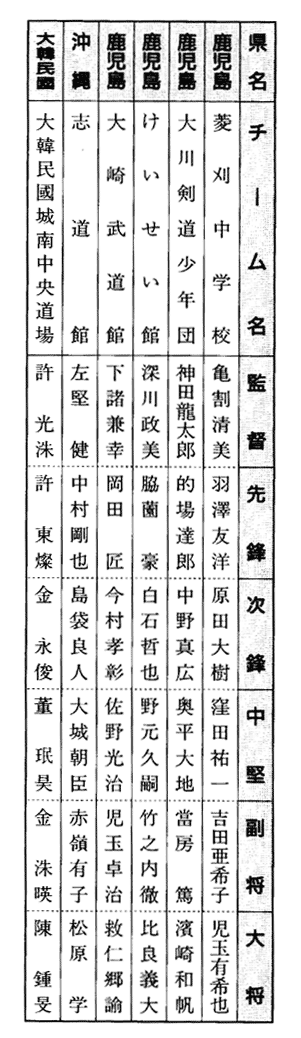 県名 チーム名 監督 先鋒 次鋒 中堅 副将 大将
鹿児島 菱刈中学校 亀割清美 羽澤友洋 原田大樹 窪田祐一 吉田亜希子 児玉有希也
鹿児島 大川剣道少年団 神田龍太郎 的場達郎 中野真広 奥平大地 當房篤 濱崎和帆
鹿児島 けいせい館 深川政美 脇薗豪 白石哲也 野元久嗣 竹之内徹 比良義大
鹿児島 大崎武道館 下諸兼幸 岡田匠 今村孝彰 佐野光治 児玉卓治 救仁郷諭
沖縄 志道館 左堅健 中村剛也 島袋良人 大城朝臣 赤嶺有子 松原学
大韓民國 大韓民國城南中央道場 許光洙 許東燦 金永俊 董珉昊 金洙暎 陳鍾旻